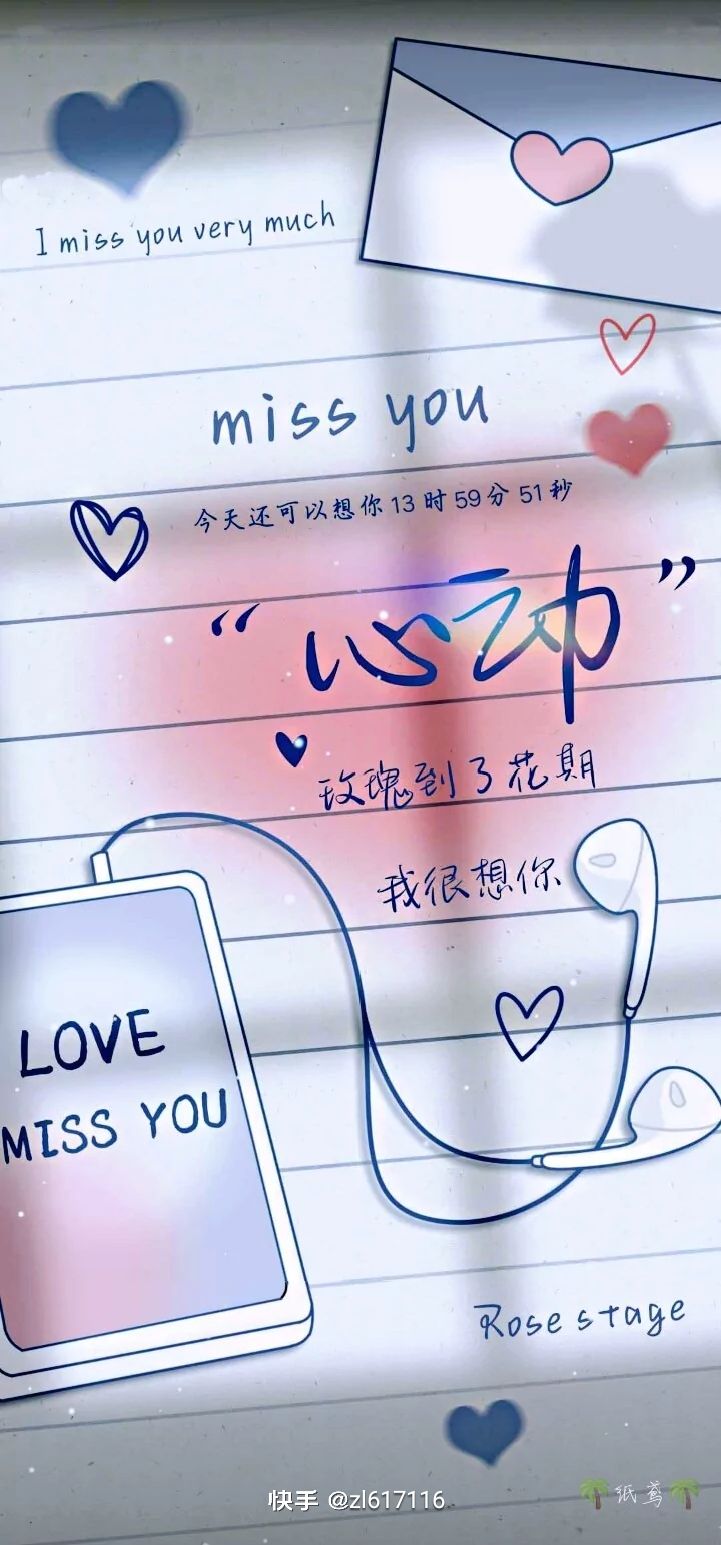 I miss you very much
miss you
今天还可以想你 13 时 59 分 51 秒
“心动”
玫瑰到了花期
我很想你
LOVE
MISS YOU
Rose stage
快手 @zl617116
🌴纸鸢🌴